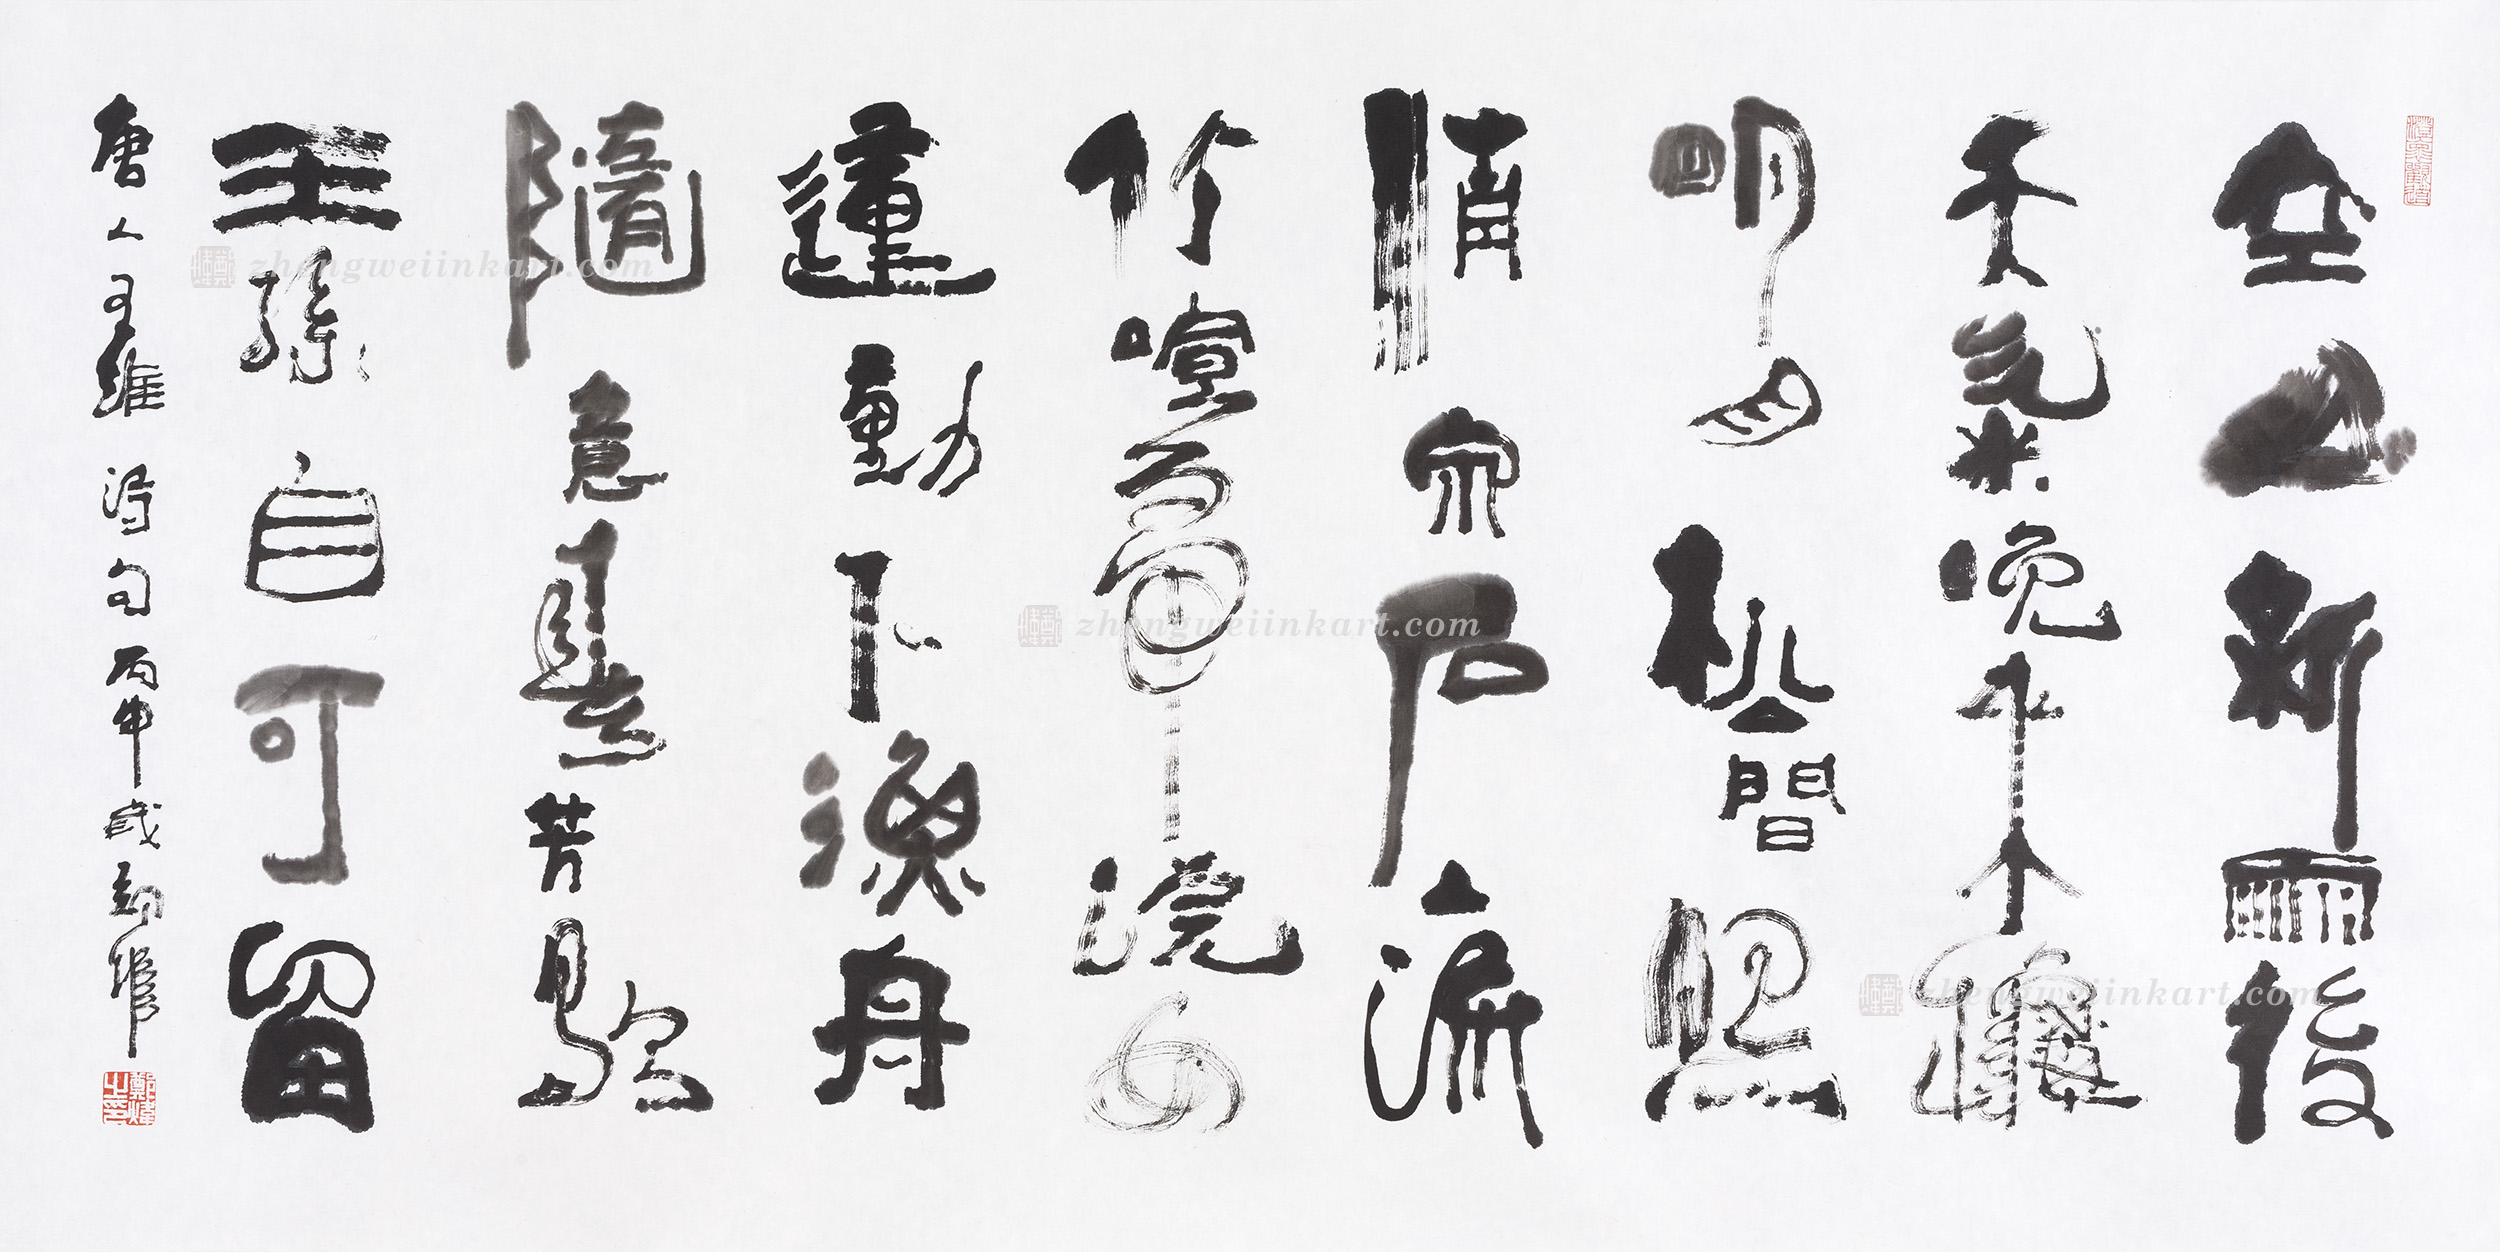 空山新雨後
天氣晚來秋
明月松間照
清泉石上流
竹喧歸浣女
蓮動下漁舟
隨意春芳歇
王孫自可留
唐人王維詩句丙申歲
zhengweiinkart.com
zhengweiinkart.com
zhengweiinkart.com